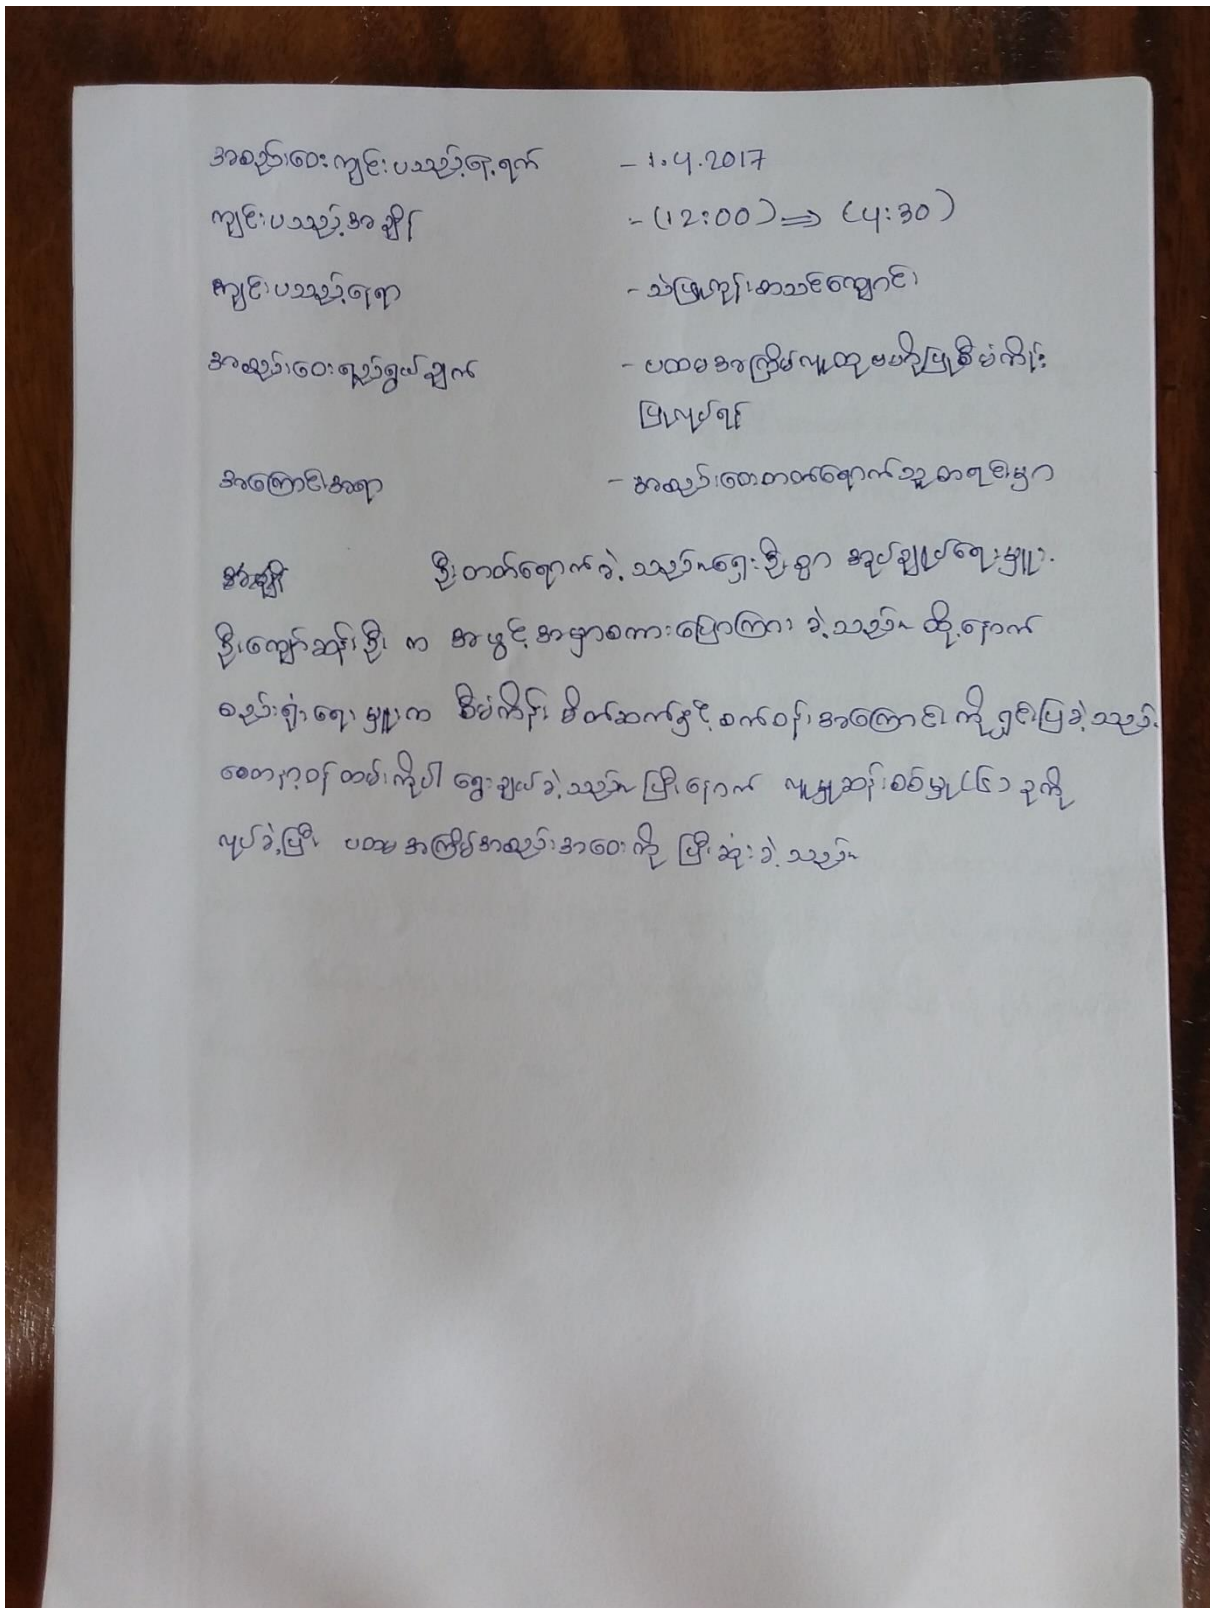 အစည်းဝေးကျင်းပသည့်နေ့ရက် - 1.4.2017
ကျင်းပသည့်အချိန် - (12:00) ⇒ (4:30)
ကျင်းပသည့်နေရာ - သဲဖြူကုန်းစာသင်ကျောင်း
အစည်းဝေးရည်ရွယ်ချက် - ပထမအကြိမ်လူထုဗဟိုပြုစီမံကိန်း
ပြုလုပ်ရန်
အကြောင်းအရာ - အစည်းဝေးတတ်ရောက်သူစာရင်းမှာ
ဦးတတ်ရောက်ခဲ့သည်။ရှေးဦးစွာ အုပ်ချုပ်ရေးမှူး
ဦးကျော်ဆန်းဦး က အဖွင့်အမှာစကားပြောကြားခဲ့သည်။ ထို့နောက်
စည်းရုံးရေးမှူးက စီမံကိန်း မိတ်ဆက်နှင့်စက်ဝန်းအကြောင်းကိုရှင်းပြခဲ့သည်။
စေတနာ့ဝန်ထမ်းကိုပါ ရွေးချယ်ခဲ့သည်။ ပြီးနောက် လူမှုဆန်းစစ်မှု(၆)ခုကို
လုပ်ခဲ့ပြီး ပထမအကြိမ်အစည်းအဝေးကို ပြီးဆုံးခဲ့သည်။